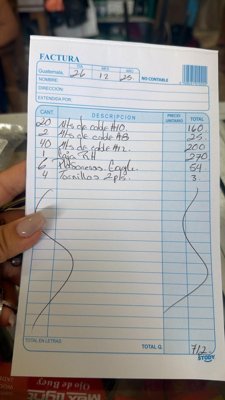 FACTURA
DIA MES AÑO
Guatemala, 26 12 25. NO CONTABLE
NOMBRE:
DIRECCION:
EXTENDIDA POR:
CANT. DESCRIPCION PRECIO UNITARIO TOTAL
20 Mts de cable #10. 160
2 Mts de cable #8 25
40 Mts de cable #12. 200
1 Caja RH 270
6 Eagle. 54
4 Tornillos 2 pls. 3
TOTAL EN LETRAS TOTAL Q. 712
STUDY
Mex Light
Ojo de Buey